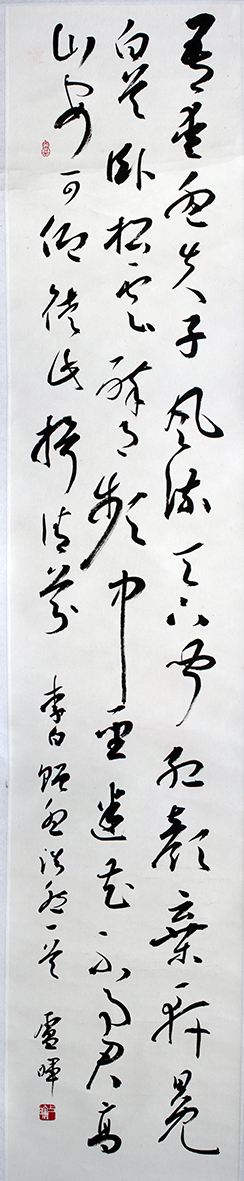 吾爱孟夫子风流天下闻红颜弃轩冕
白首卧松云醉月频中圣迷花不事君高
山安可仰徒此揖清芬
李白赠孟浩然一首 卢晖